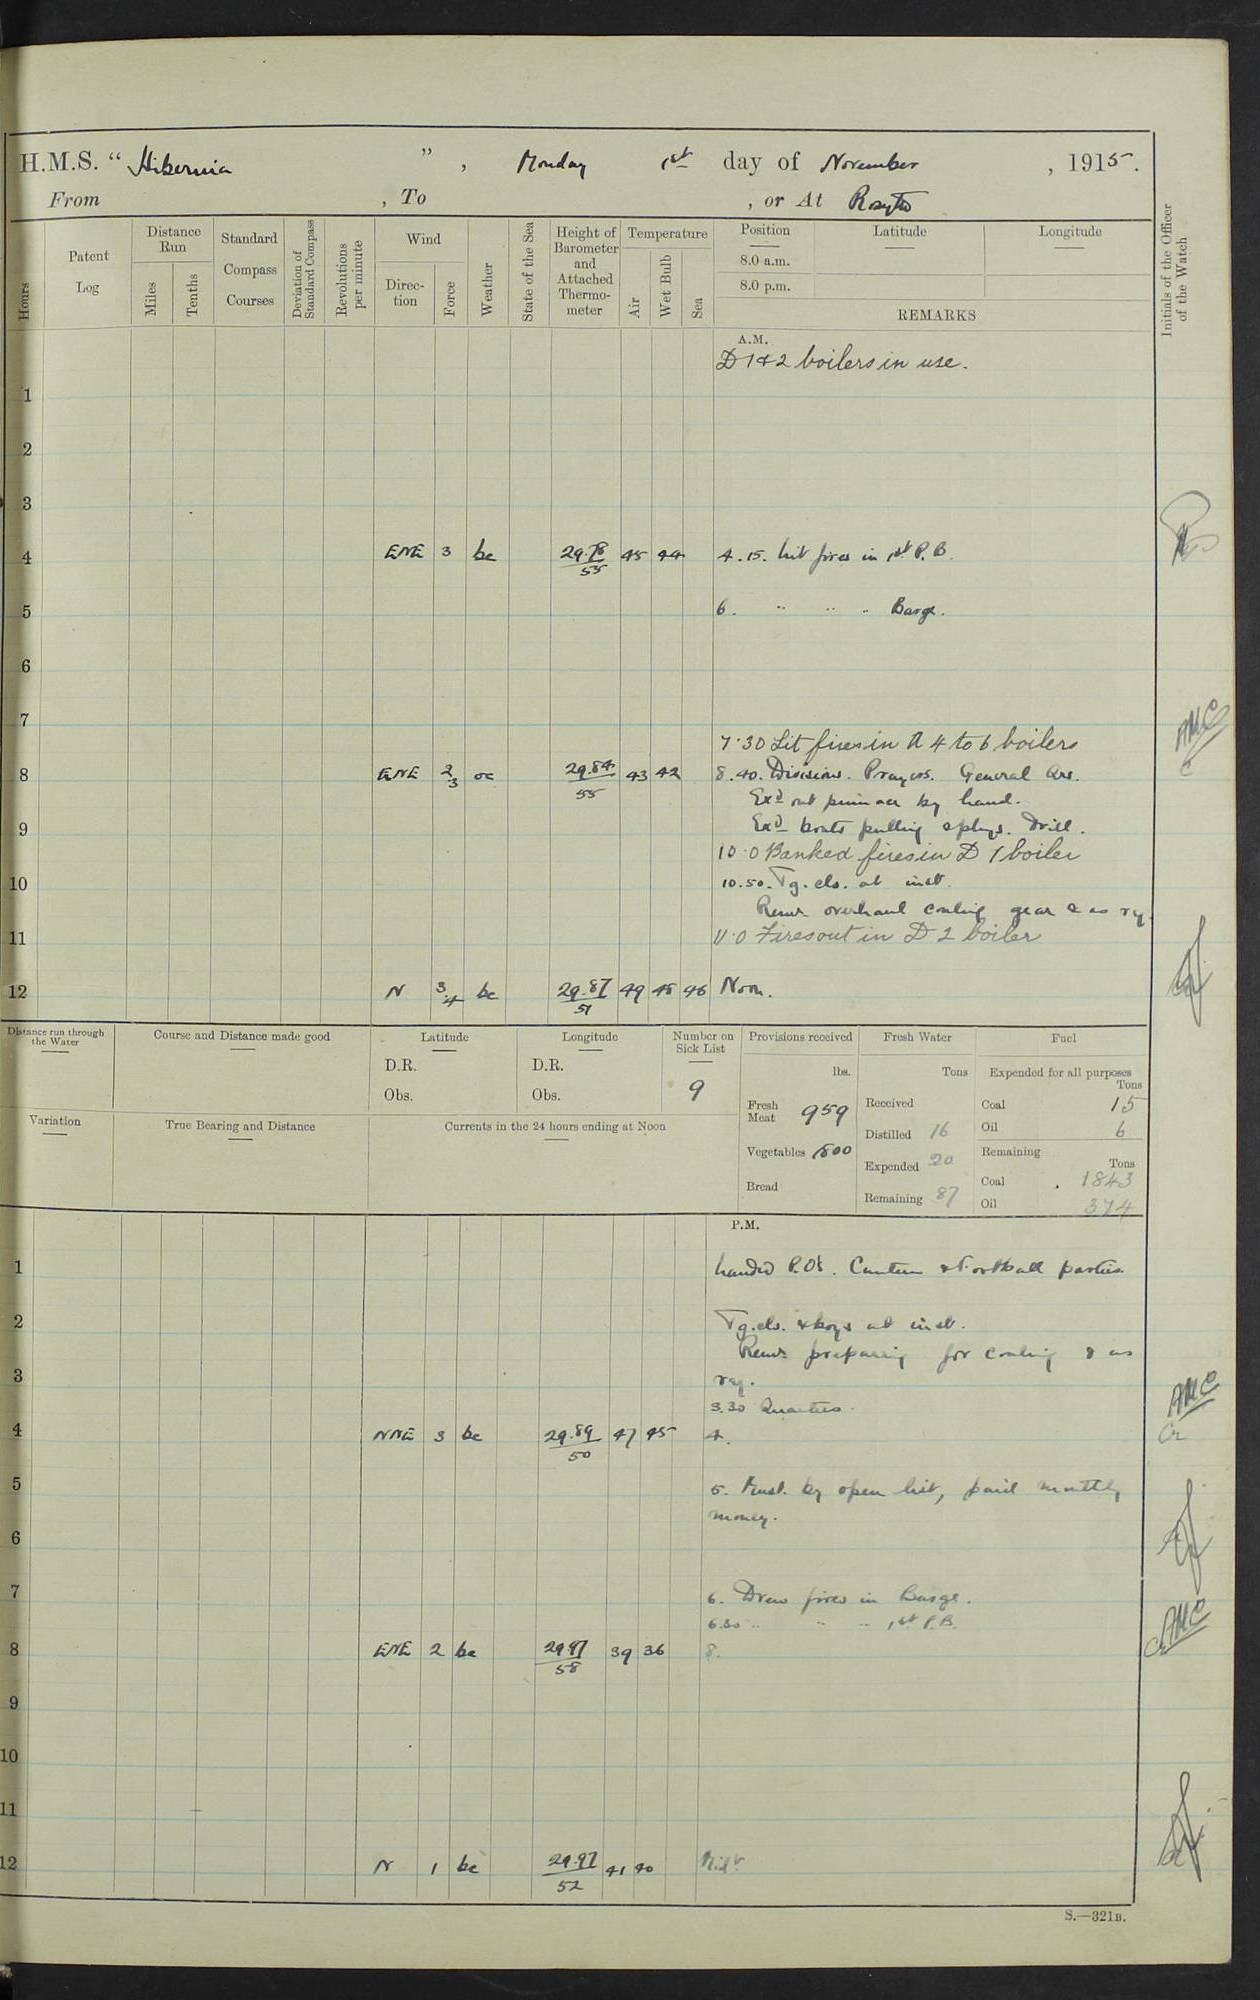 H.M.S. "Hibernia", Monday 1st day of November, 1915.
From , To , or At Rosyth
Hours
Patent Log
Distance Run
Miles
Tenths
Standard Compass Courses
Deviation of Standard Compass
Revolutions per minute
Wind
Direc-tion
Force
Weather
State of the Sea
Height of Barometer and Attached Thermo-meter
Temperature
Air
Wet Bulb
Sea
Position
8.0 a.m.
8.0 p.m.
Latitude
Longitude
REMARKS
Initials of the Officer of the Watch
A.M.
D 1 & 2 boilers in use.
1
2
3
4 ENE 3 bc 29.78/55 45 44 4.15. Lit fires in 1st P.B.
5
6. " " " Barge.
6
7
7.30 Lit fires in A 4 to 6 boilers
8 ENE 2/3 oc 29.84/55 43 42 8.40. Divisions. Prayers. General Qrs.
AMC
Exd out pinnace by hand.
9 Exd boats pulling & phys. Drill.
10.0 Banked fires in D 1 boiler
10 10.50. Tg. cls. at inst.
Remr overhaul coaling gear & as rq.
11 11.0 Fires out in D 2 boiler
12 N 3.4 bc 29.87/51 49 48 46 Noon.
Distance run through the Water
Course and Distance made good
Latitude
D.R.
Obs.
Longitude
D.R.
Obs.
Number on Sick List
9
Provisions received
lbs.
Fresh Meat 959
Vegetables 1800
Bread
Fresh Water
Tons
Received
Distilled 16
Expended 20
Remaining 87
Fuel
Expended for all purposes
Tons
Coal 15
Oil 6
Remaining
Tons
Coal 1843
Oil 374
Variation
True Bearing and Distance
Currents in the 24 hours ending at Noon
P.M.
1 Landed P.Os. Canteen & Football parties
2 Tg. cls. & boys at inst.
Remr preparing for coaling & as
3 rq.
3.30 Quarters.
AMC
4 NNE 3 bc 29.89/50 47 45 4.
5 5. Must. by open list, paid monthly
money.
6
7 6. Drew fires in Barge.
6.30 " " " 1st P.B.
AMC
8 ENE 2 bc 29.97/58 39 36 8.
9
10
11
12 N 1 bc 29.97/52 41 40 Midt.
S.—321B.